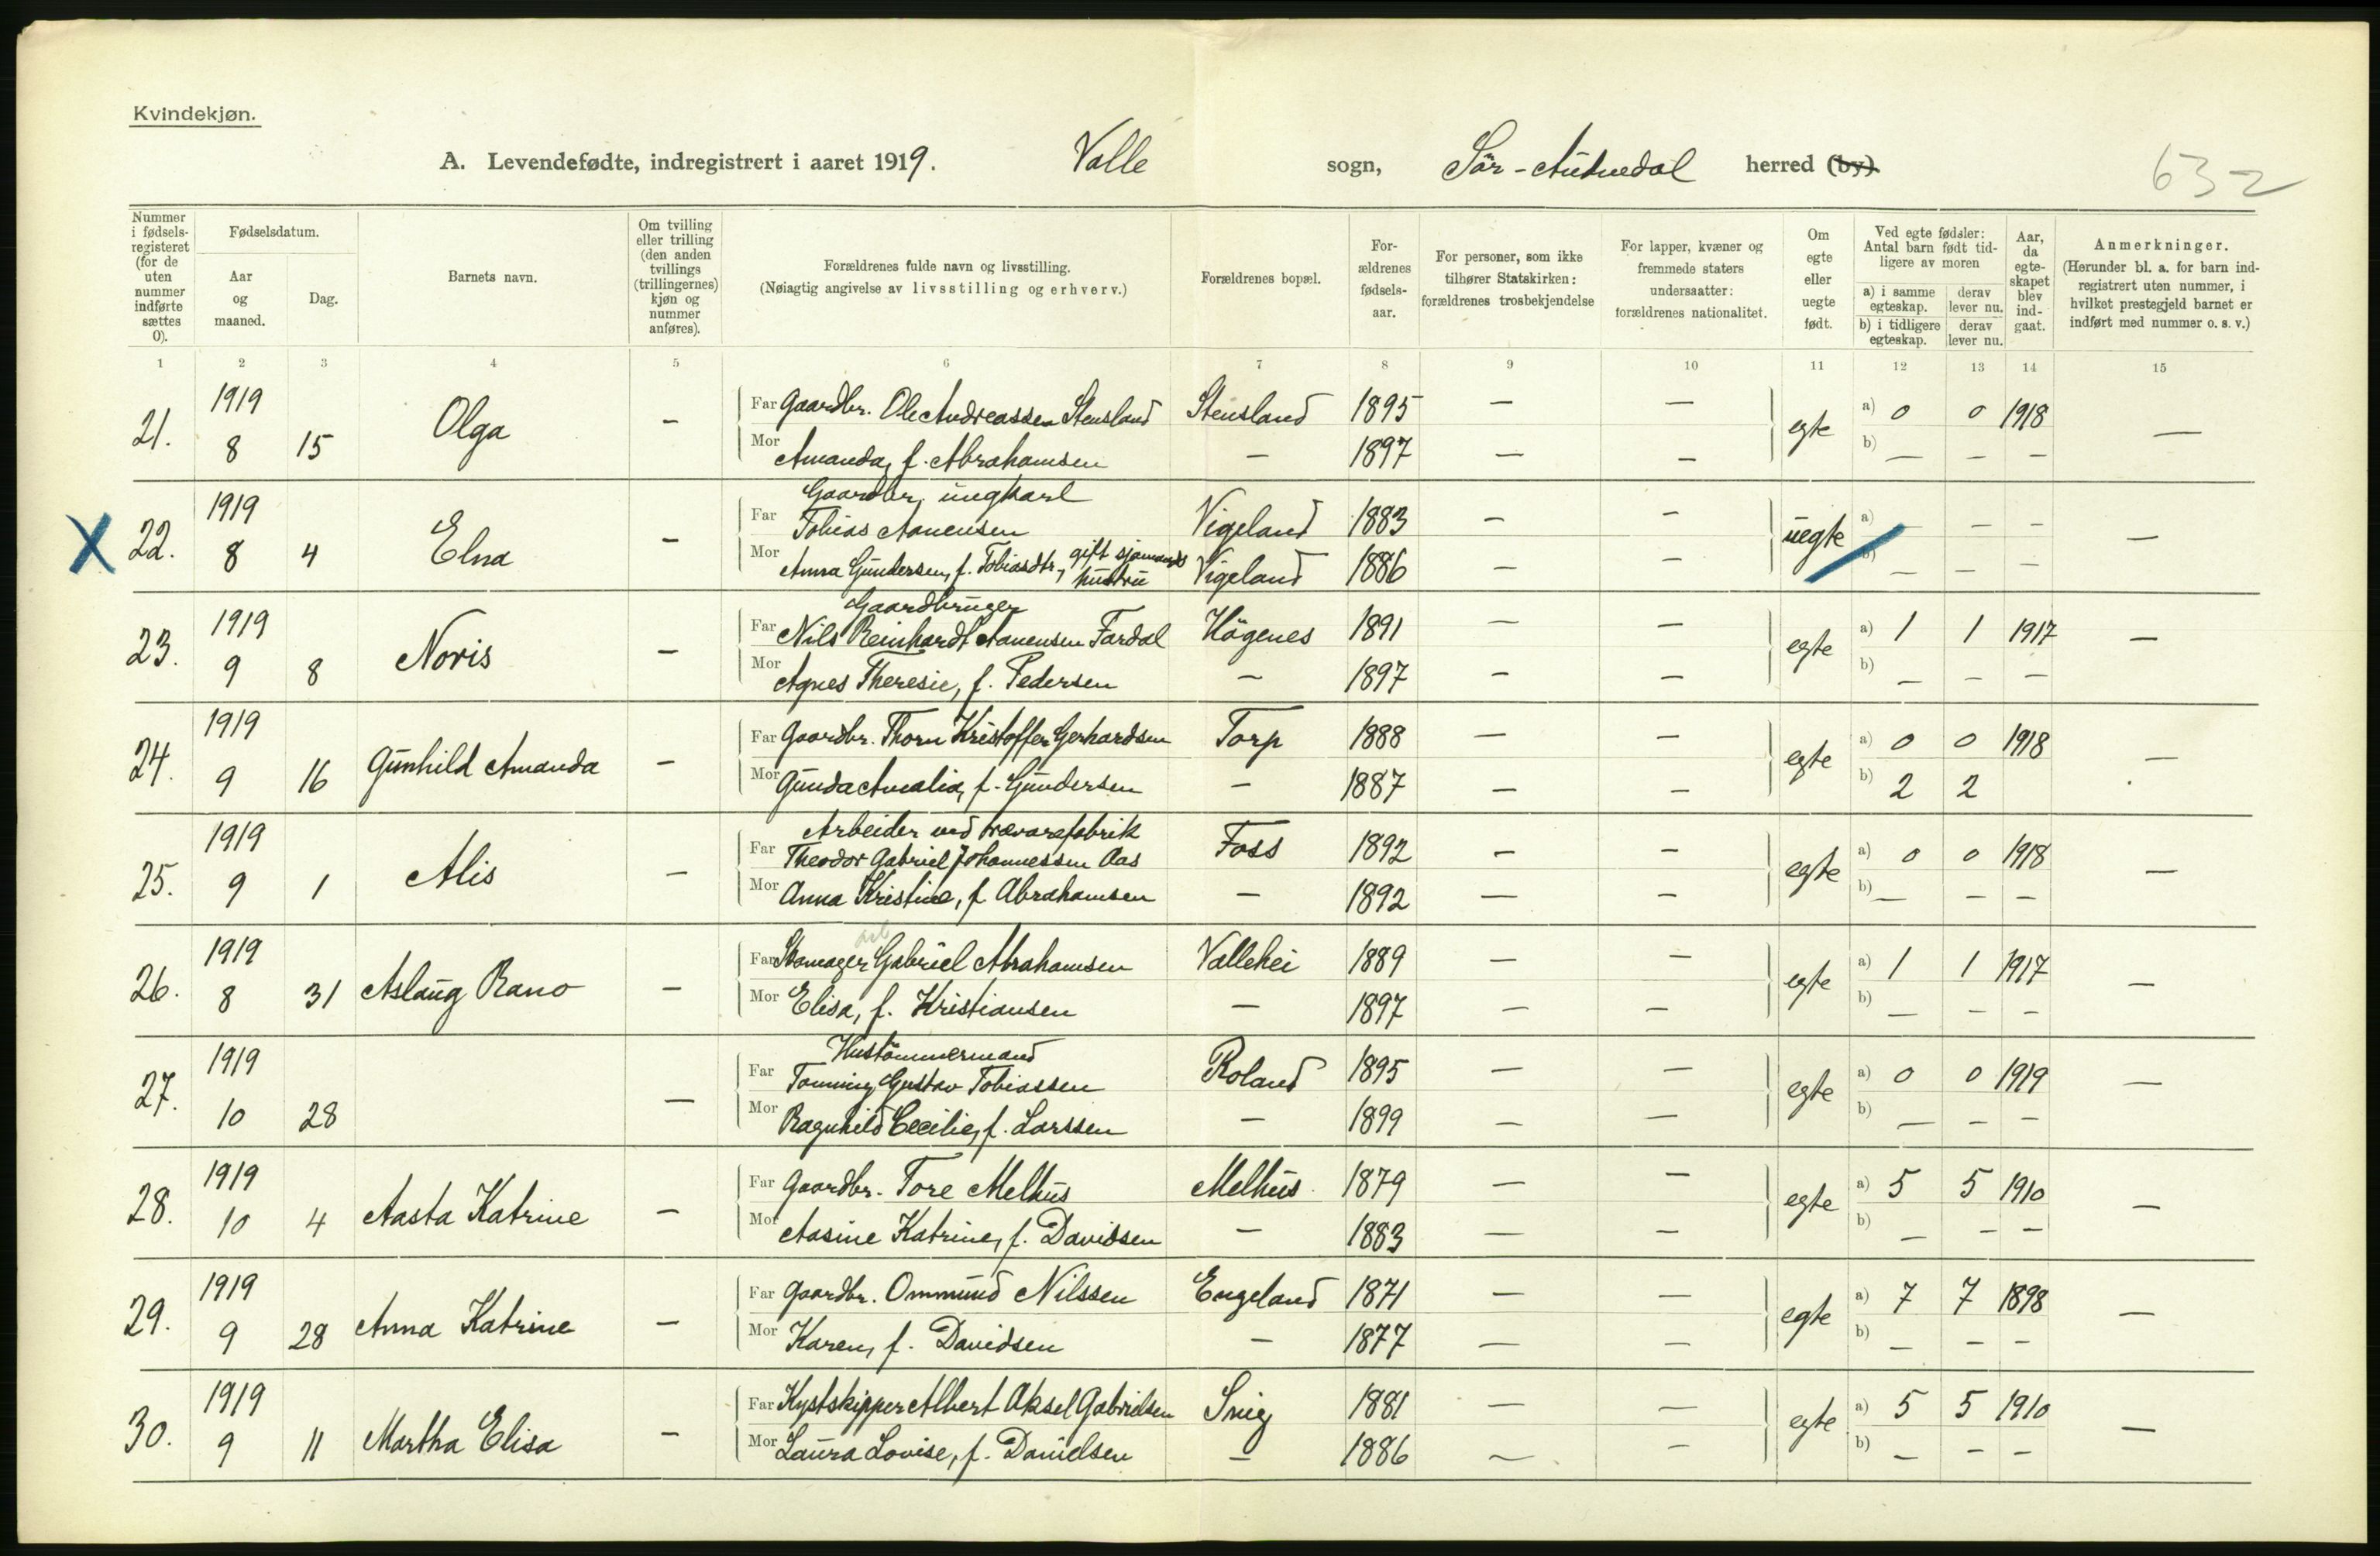 Kvindekjøn.
A. Levendefødte, indregistrert i aaret 1919. Valle sogn, Sör-Audnedal herred (by)
632
Nummer i fødsels-registeret (for de uten nummer indførte sættes 0).
Fødselsdatum.
Aar og maaned.
Dag.
Barnets navn.
Om tvilling eller trilling (den anden tvillings (trillingernes) kjøn og nummer anføres).
Forældrenes fulde navn og livsstilling.
(Nøiagtig angivelse av livsstilling og erhverv.)
Forældrenes bopæl.
For-ældrenes fødsels-aar.
For personer, som ikke tilhører Statskirken: forældrenes trosbekjendelse
For lapper, kvæner og fremmede staters undersaatter: forældrenes nationalitet.
Om egte eller uegte født.
Ved egte fødsler: Antal barn født tid-ligere av moren
a) i samme egteskap. derav lever nu.
b) i tidligere egteskap. derav lever nu.
Aar, da egte-skapet blev ind-gaat.
Anmerkninger.
(Herunder bl. a. for barn ind-registrert uten nummer, i hvilket prestegjeld barnet er indført med nummer o. s. v.)
1 2 3 4 5 6 7 8 9 10 11 12 13 14 15
21. 1919 8 15 Olga — Far Gaardbr. Ole Andreassen Stensland Stensland 1895 — — egte a) 0 0 1918 —
Mor Amanda, f. Abrahamsen — 1897 — — b) — — —
X 22. 1919 8 4 Elna — Gaardbr, ungkarl
Far Tobias Aanensen Vigeland 1883 — — uegte a) — — — —
Mor Anna Gundersen, f. Tobiasdtr, gift sjømands hustru Vigeland 1886 — — b) — — —
23. 1919 9 8 Noris — Gaardbruger
Far Nils Reinhardt Aanensen Fardal Högenes 1891 — — egte a) 1 1 1917 —
Mor Agnes Theresie, f. Pedersen — 1897 — — b) — — —
24. 1919 9 16 Gunhild Amanda — Far Gaardbr. Thorn Kristoffer Gerhardsen Torp 1888 — — egte a) 0 0 1918 —
Mor Gunda Amalia, f. Gundersen — 1887 — — b) 2 2
25. 1919 9 1 Alis — Arbeider ved trævarefabrik
Far Theodor Gabriel Johannessen Aas Foss 1892 — — egte a) 0 0 1918 —
Mor Anna Kristine, f. Abrahamsen — 1892 — — b) — — —
26. 1919 8 31 Aslaug Rano — Far Skomager Gabriel Abrahamsen Vallehei 1889 — — egte a) 1 1 1917 —
Mor Elisa, f. Kristiansen — 1897 — — b) — — —
27. 1919 10 28 — Hustömmermand
Far Tønning Gustav Tobiassen Roland 1895 — — egte a) 0 0 1919 —
Mor Ragnhild Cecilie, f. Larssen — 1899 — — b) — — —
28. 1919 10 4 Aasta Katrine — Far Gaardbr. Tore Melhus Melhus 1879 — — egte a) 5 5 1910 —
Mor Aasine Katrine, f. Davidsen — 1883 — — b) — — —
29. 1919 9 28 Anna Katrine — Far Gaardbr. Ommund Nilssen Engeland 1871 — — egte a) 7 7 1898 —
Mor Karen, f. Davidsen — 1877 — — b) — — —
30. 1919 9 11 Martha Elisa — Far Kystskipper Albert Aksel Gabrielsen Snig 1881 — — egte a) 5 5 1910 —
Mor Laura Lovise, f. Danielsen — 1886 — — b) — — —